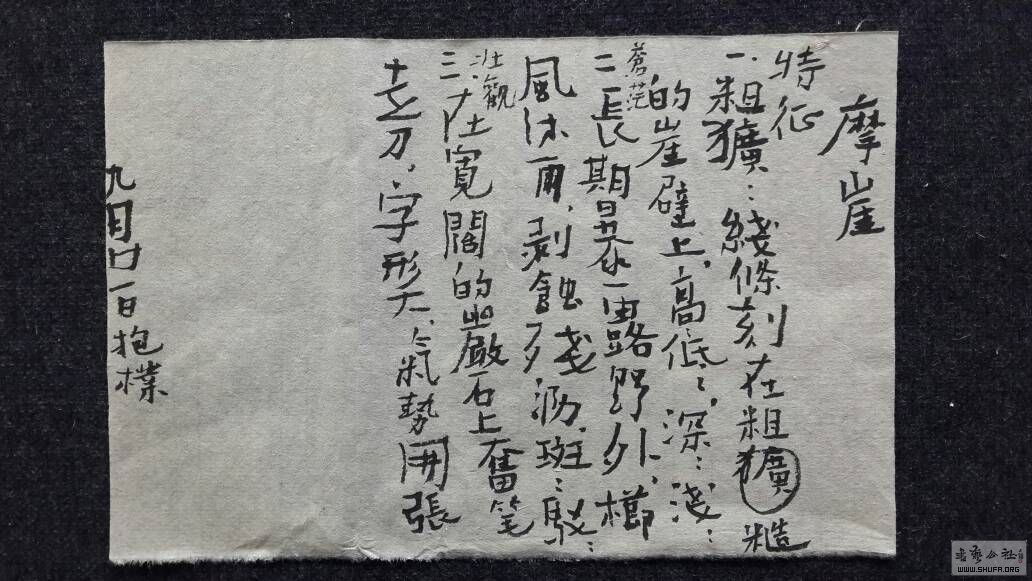 摩崖
特征
一.粗獷:綫條刻在粗獷糙
的崖壁上,高低:,深:淺:
蒼茫
二長期暴露野外,櫛
風沐雨,剥蝕殘泐,斑:駁:
壯觀
三.在寬闊的巖石上奮笔
走刀,字形大,氣勢開張
九月廿一日抱樸
WWW.SHUFA.ORG